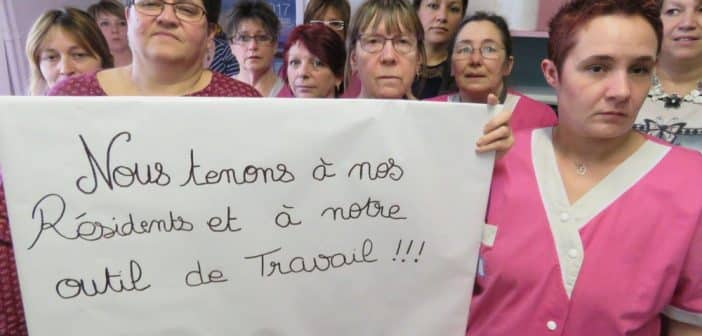 2017
Nous tenons à nos
Résidents et à notre
outil de Travail !!!